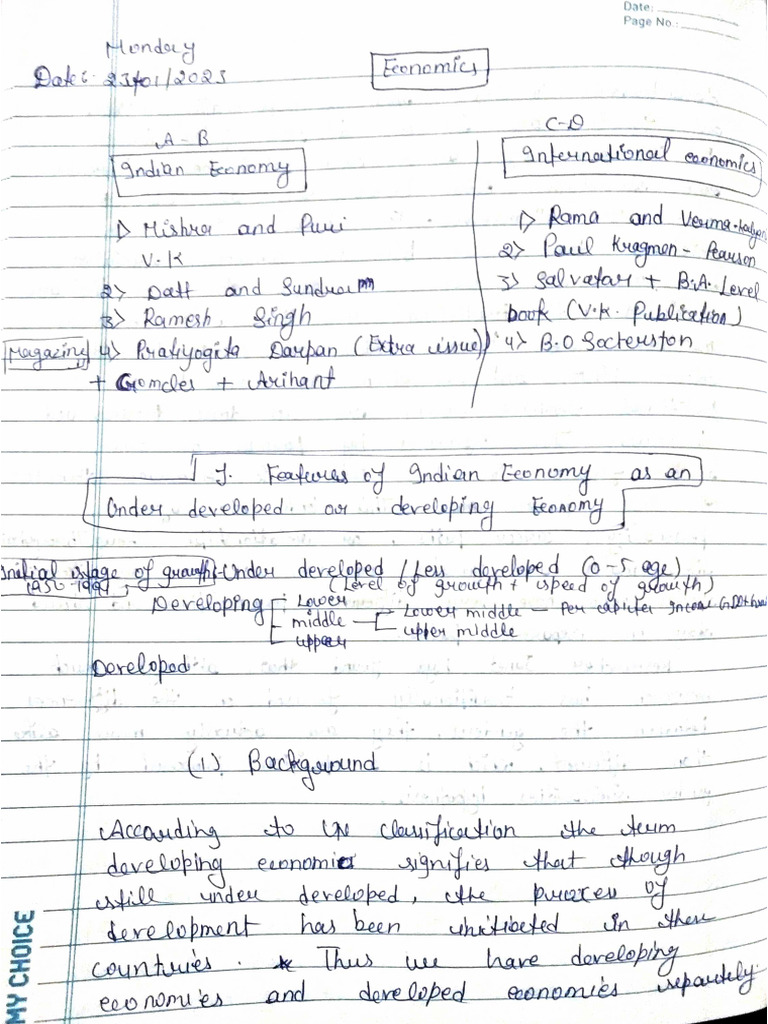 Date:
Page No.:
Monday
Date: 23/01/2023
Economics
A-B
Indian Economy
1> Mishra and Puri
V.K
2> Datt and Sundram
3> Ramesh Singh
Magaziny 4> Pratiyogita Darpan (Extra issue)
+ + Arihant
C-D
International economics
1> Rama and Verma-
2> Paul Krugman - Pearson
3> Salvatar + B.A. Level
book (V.K. Publication)
4> B.O
I. Features of Indian Economy as an
Under developed or developing Economy
Initial stage of growth - Under developed / Less developed (0-5 age)
1950-1991, (Level of growth + speed of growth)
Developing Lower
middle Lower middle - Per capita Income
upper upper middle
Developed
(1). Background
According to UN classification the term
developing economies signifies that though
still under developed, the process of
development has been initiated in these
countries. Thus we have developing
economies and developed economies separately.
MY CHOICE